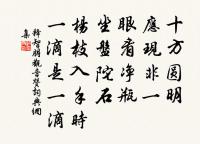 十方圆明
應現非一
眼看净瓶
坐盤陀石
楊枝入手時
一滴是一滴
釋智朋觀音贊詞典網
集